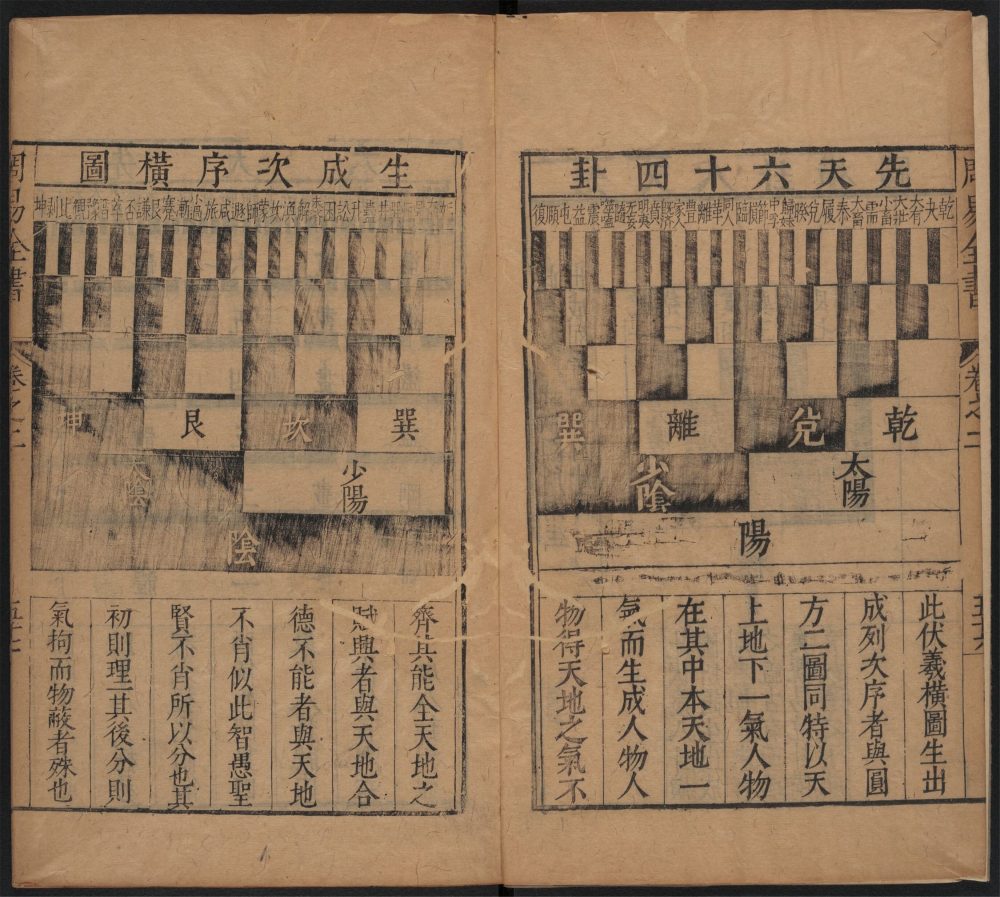 周易全書
卷之二
先天六十四卦
乾夬大有大壯小畜需大畜泰履兌睽歸妹中孚節損臨同人革離豐家人既濟賁明夷无妄隨噬嗑震益屯頤復
乾 兌 離 巽
太陽 少陰
陽
此伏羲橫圖生出
成列次序者與圓
方二圖同特以天
上地下一氣人物
在其中本天地一
氣而生成人物人
物得天地之氣不
生成次序橫圖
井蠱升訟困未濟解渙坎蒙師遯咸旅小過漸蹇艮謙否萃晉豫觀比剝坤
巽 坎 艮 坤
少陽 太陰
陰
齊其能全天地之
賦與者與天地合
德不能者與天地
不肖似此智愚聖
賢不肖所以分也其
初則理一其後分則
氣拘而物蔽者殊也
周易全書
卷之二
五十七